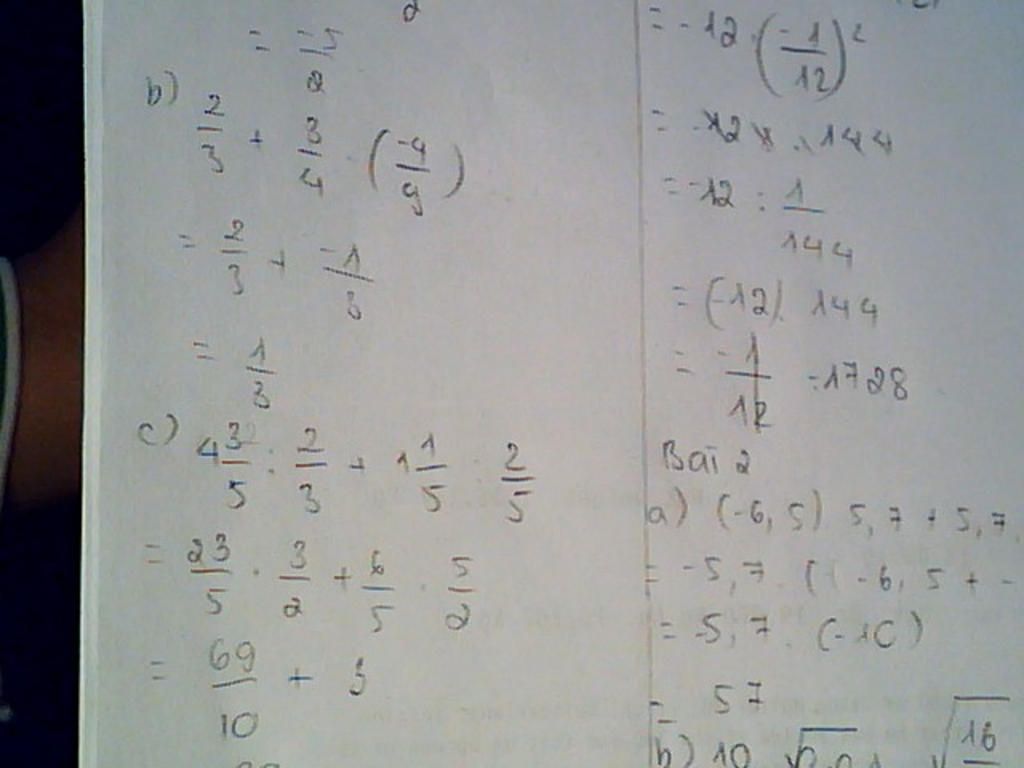 = -5/2
b) 2/3 + 3/4 . (-4/9)
= 2/3 + -1/3
= 1/3
c) 4 3/5 : 2/3 + 1 1/5 : 2/5
= 23/5 . 3/2 + 6/5 . 5/2
= 69/10 + 3
= -12 : (-1/12)²
= -12 : 1/144
= (-12) . 144
= -1728
Bai 2
a) (-6,5) 5,7 + 5,7.
= -5,7 . ( -6,5 + -
= -5,7 . (-10)
= 57
b) 10 √ √16